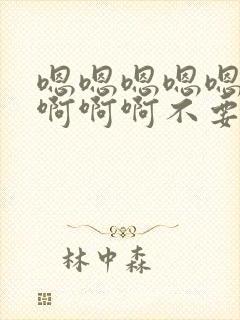 嗯嗯嗯嗯嗯
啊啊啊不要
林中森